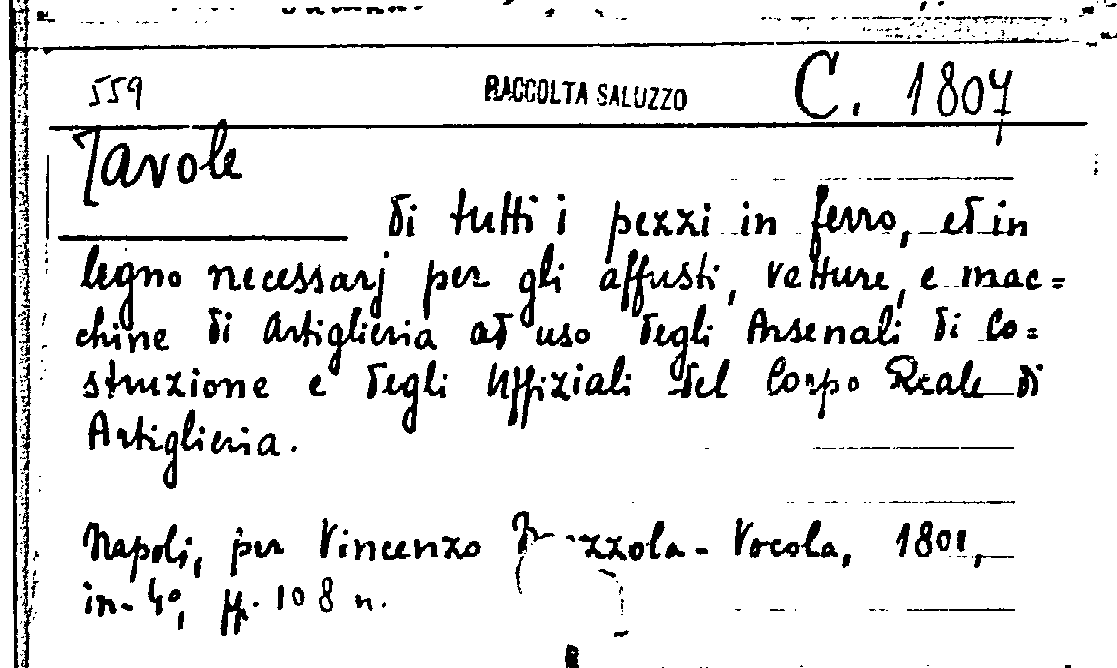 559 RACCOLTA SALUZZO C. 1807
Tavole
di tutti i pezzi in ferro, ed in
legno necessarj per gli affusti, vetture, e mac=
chine di Artiglieria ad uso degli Arsenali di Co=
struzione e degli Uffiziali del Corpo Reale di
Artiglieria.
Napoli, per Vincenzo Vocola, 1801,
in-4º, pp. 108 n.